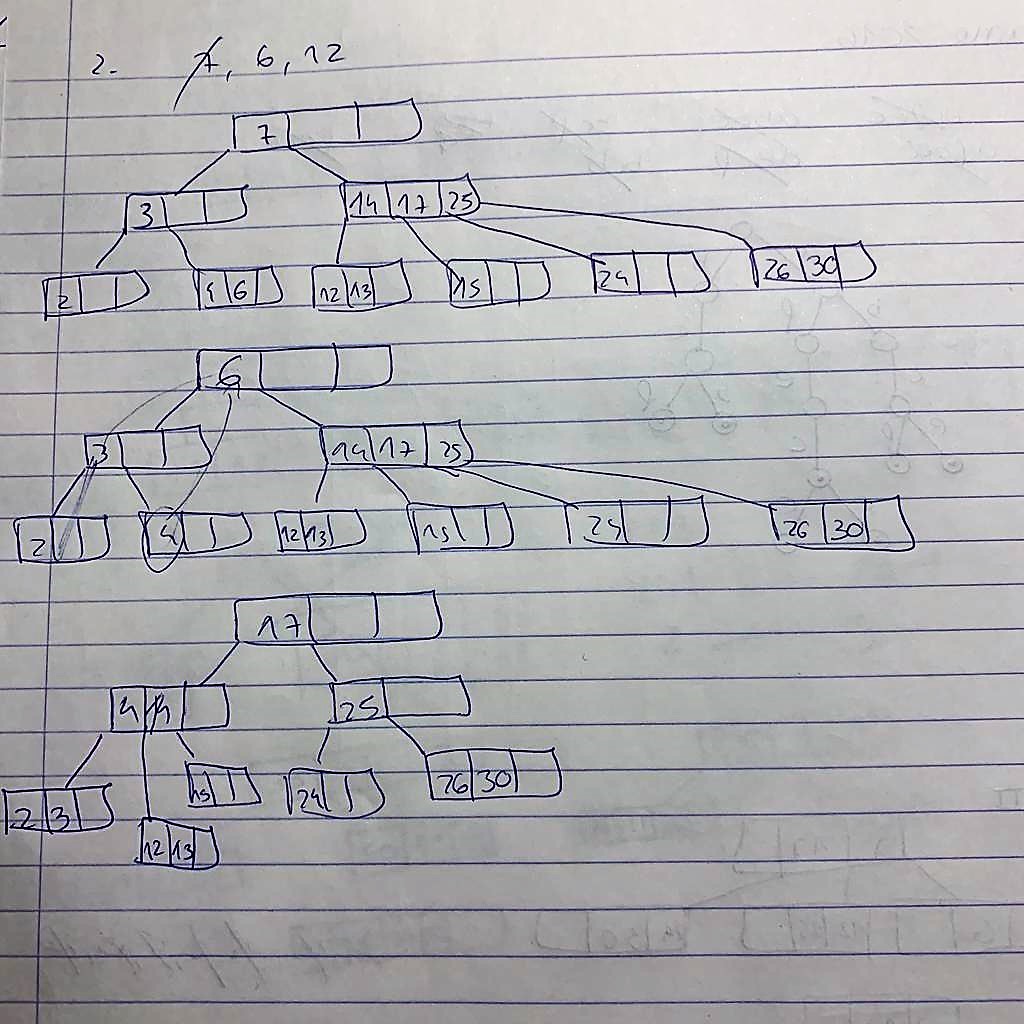 2. 7, 6, 12
7
3 14 17 25
2 4 6 12 13 15 24 26 30
6
3 14 17 25
2 4 12 13 15 24 26 30
17
4 14 25
2 3 15 24 26 30
12 13